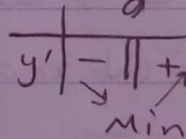 y' − || +
Min